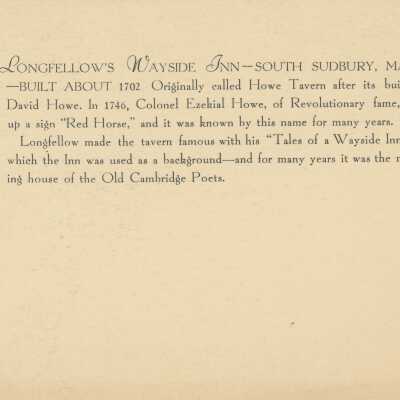 LONGFELLOW'S WAYSIDE INN—SOUTH SUDBURY, MA
—BUILT ABOUT 1702 Originally called Howe Tavern after its bui
David Howe. In 1746, Colonel Ezekial Howe, of Revolutionary fame,
up a sign "Red Horse," and it was known by this name for many years.
Longfellow made the tavern famous with his "Tales of a Wayside Inn
which the Inn was used as a background—and for many years it was the m
ing house of the Old Cambridge Poets.